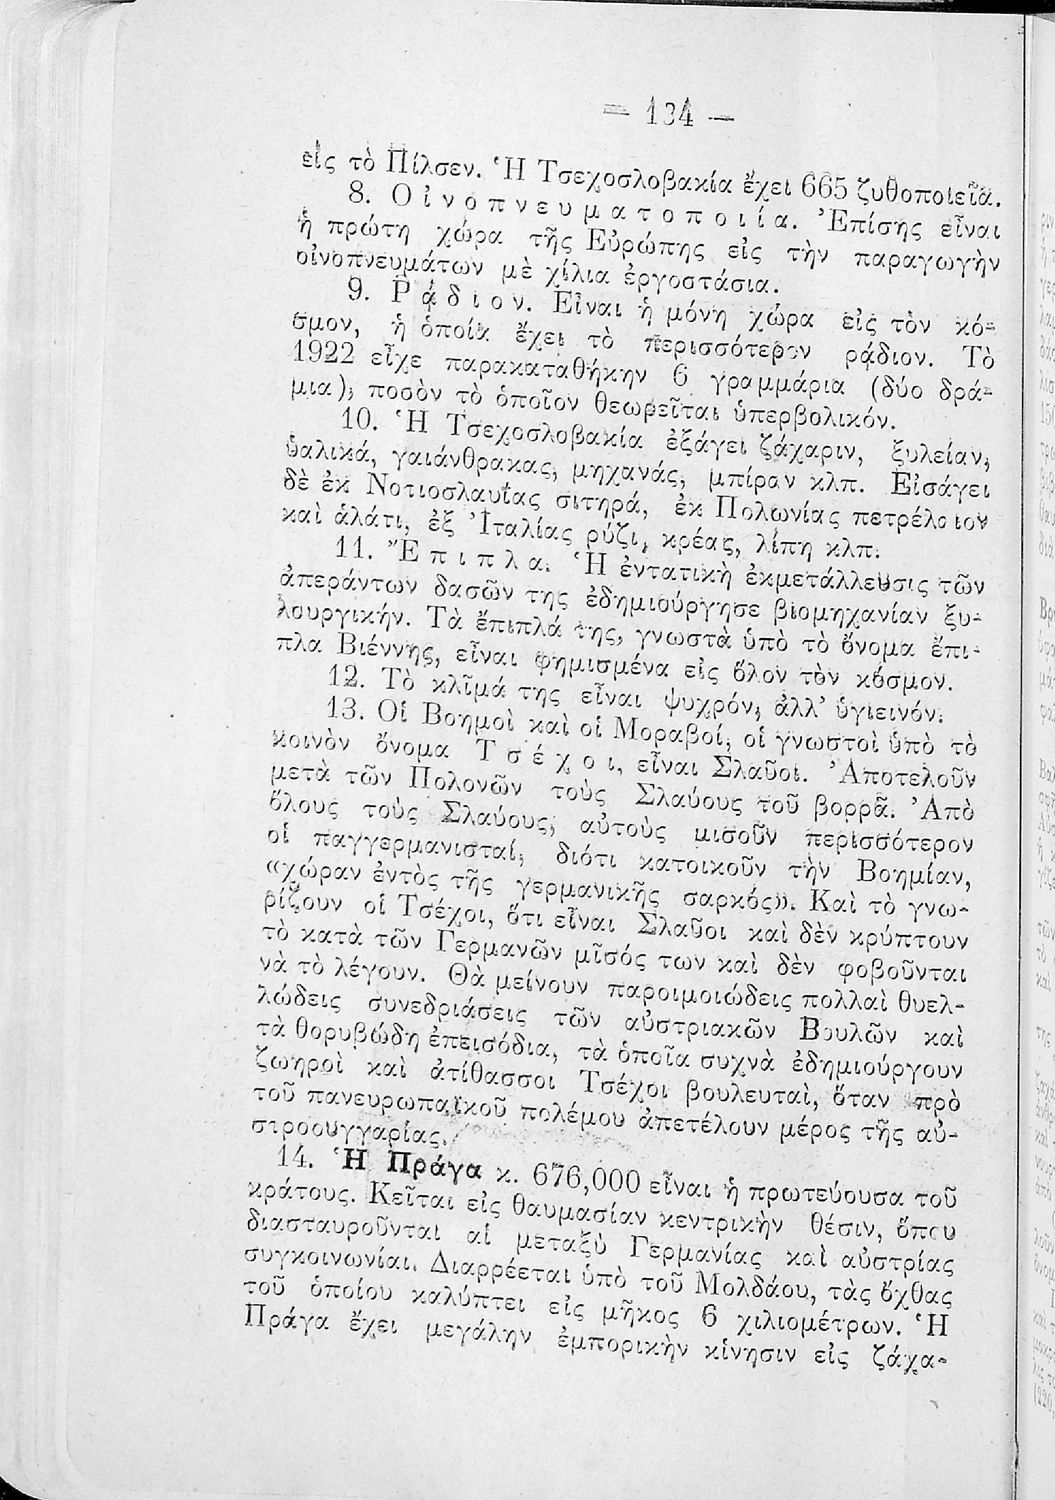 — 134 —
εἰς τὸ Πίλσεν. Ἡ Τσεχοσλοβακία ἔχει 665 ζυθοποιεῖα.
8. Οἰνοπνευματοποιία. Ἐπίσης εἶναι
ἡ πρώτη χώρα τῆς Εὐρώπης εἰς τὴν παραγωγὴν
οἰνοπνευμάτων μὲ χίλια ἐργοστάσια.
9. Ράδιον. Εἶναι ἡ μόνη χώρα εἰς τὸν κό-
σμον, ἡ ὁποία ἔχει τὸ περισσότερον ράδιον. Τὸ
1922 εἶχε παρακαταθήκην 6 γραμμάρια (δύο δρά-
μια), ποσὸν τὸ ὁποῖον θεωρεῖται ὑπερβολικόν.
10. Ἡ Τσεχοσλοβακία ἐξάγει ζάχαριν, ξυλείαν,
ὑαλικά, γαιάνθρακας, μηχανάς, μπίραν κλπ. Εἰσάγει
δὲ ἐκ Νοτιοσλαυΐας σιτηρά, ἐκ Πολωνίας πετρέλαιον
καὶ ἁλάτι, ἐξ Ἰταλίας ρύζι, κρέας, λίπη κλπ.
11. Ἔπιπλα. Ἡ ἐντατικὴ ἐκμετάλλευσις τῶν
ἀπεράντων δασῶν της ἐδημιούργησε βιομηχανίαν ξυ-
λουργικήν. Τὰ ἔπιπλά της, γνωστὰ ὑπὸ τὸ ὄνομα ἔπι-
πλα Βιέννης, εἶναι φημισμένα εἰς ὅλον τὸν κόσμον.
12. Τὸ κλῖμά της εἶναι ψυχρόν, ἀλλ' ὑγιεινόν.
13. Οἱ Βοημοὶ καὶ οἱ Μοραβοί, οἱ γνωστοὶ ὑπὸ τὸ
κοινὸν ὄνομα Τσέχοι, εἶναι Σλαῦοι. Ἀποτελοῦν
μετὰ τῶν Πολονῶν τοὺς Σλαύους τοῦ βορρᾶ. Ἀπὸ
ὅλους τοὺς Σλαύους, αὐτοὺς μισοῦν περισσότερον
οἱ παγγερμανισταί, διότι κατοικοῦν τὴν Βοημίαν,
«χώραν ἐντὸς τῆς γερμανικῆς σαρκός». Καὶ τὸ γνω-
ρίζουν οἱ Τσέχοι, ὅτι εἶναι Σλαῦοι καὶ δὲν κρύπτουν
τὸ κατὰ τῶν Γερμανῶν μῖσός των καὶ δὲν φοβοῦνται
νὰ τὸ λέγουν. Θὰ μείνουν παροιμοιώδεις πολλαὶ θυελ-
λώδεις συνεδριάσεις τῶν αὐστριακῶν Βουλῶν καὶ
τὰ θορυβώδη ἐπεισόδια, τὰ ὁποῖα συχνὰ ἐδημιούργουν
ζωηροὶ καὶ ἀτίθασσοι Τσέχοι βουλευταὶ, ὅταν πρὸ
τοῦ πανευρωπαϊκοῦ πολέμου ἀπετέλουν μέρος τῆς αὐ-
στροουγγαρίας.
14. Ἡ Πράγα κ. 676,000 εἶναι ἡ πρωτεύουσα τοῦ
κράτους. Κεῖται εἰς θαυμασίαν κεντρικὴν θέσιν, ὅπου
διασταυροῦνται αἱ μεταξὺ Γερμανίας καὶ αὐστρίας
συγκοινωνίαι. Διαρρέεται ὑπὸ τοῦ Μολδάου, τὰς ὄχθας
τοῦ ὁποίου καλύπτει εἰς μῆκος 6 χιλιομέτρων. Ἡ
Πράγα ἔχει μεγάλην ἐμπορικὴν κίνησιν εἰς ζάχα-